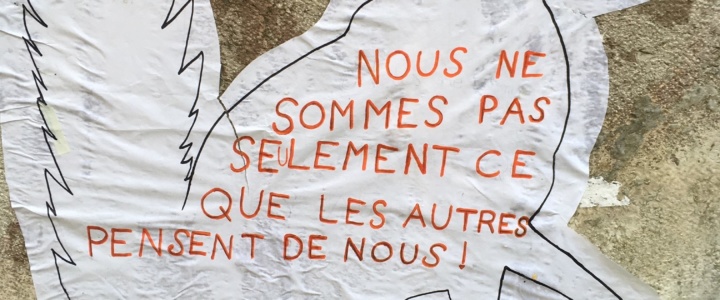 NOUS NE
SOMMES PAS
SEULEMENT CE
QUE LES AUTRES
PENSENT DE NOUS !